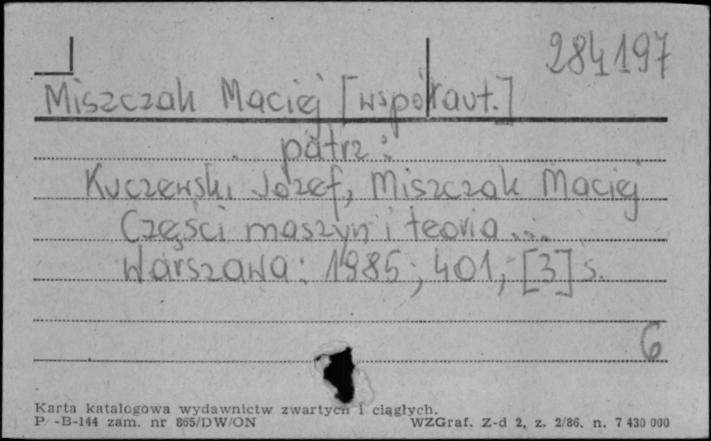 284197
Miszczak Maciej [współaut.]
patrz:
Kuczewski Józef, Miszczak Maciej
Części maszyn i teoria ...
Warszawa: 1985, 401, [3] s.
6
Karta katalogowa wydawnictw zwartych i ciągłych.
P -B-144 zam. nr 865/DW/ON WZGraf. Z-d 2, z. 2/86. n. 7 430 000